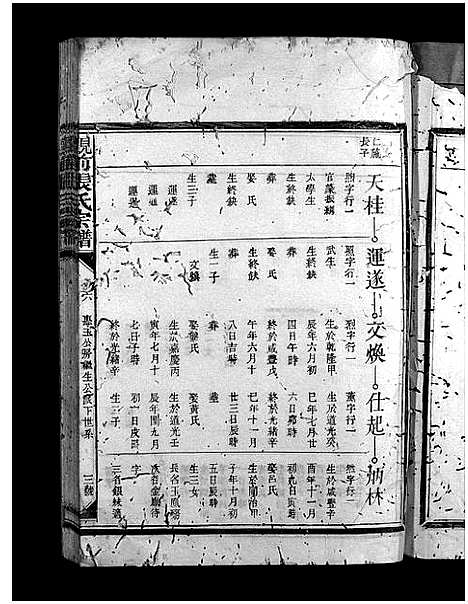 仁誠
長子
天桂 運遂 文煥 仕起 炳林
煦字行一
太學生
生終缺
葬
娶氏
生終缺
葬
生三子
運遂
照字行一
武生
生終缺
葬
娶氏
生終缺
葬
生一子
文煥
烈字行一
生於乾隆甲
辰年六月初
四日午時
終於咸豐戊
午年六月十
八日吉時
葬
娶熊氏
生於嘉慶丙
寅年七月十
七日子時
終於光緒辛
薰字行一
生於道光癸
巳年七月廿
六日時
終於光緒辛
巳年十一月
廿三日辰時
葬
娶黃氏
生於道光壬
辰年閏九月
初一日戌時
生三子
然字行一
生於咸豐辛
酉年十一月
娶邱氏
生於同治甲
子年十月初
五日辰時
生三女
長名玉鳳
次名金鳳待
字
三名銀妹適
前張氏宗譜
卷六 惠玉公房繼生公下世系
三號